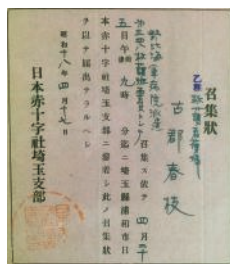 召集狀
乙種救護看護婦
古郡春枝
召集ス依テ四月二十
五日午前九時 分迄ニ埼玉縣浦和市日
本赤十字社埼玉支部ニ參着シ此ノ召集狀
ヲ以テ届出テラルヘシ
昭和十八年四月十七日
日本赤十字社埼玉支部